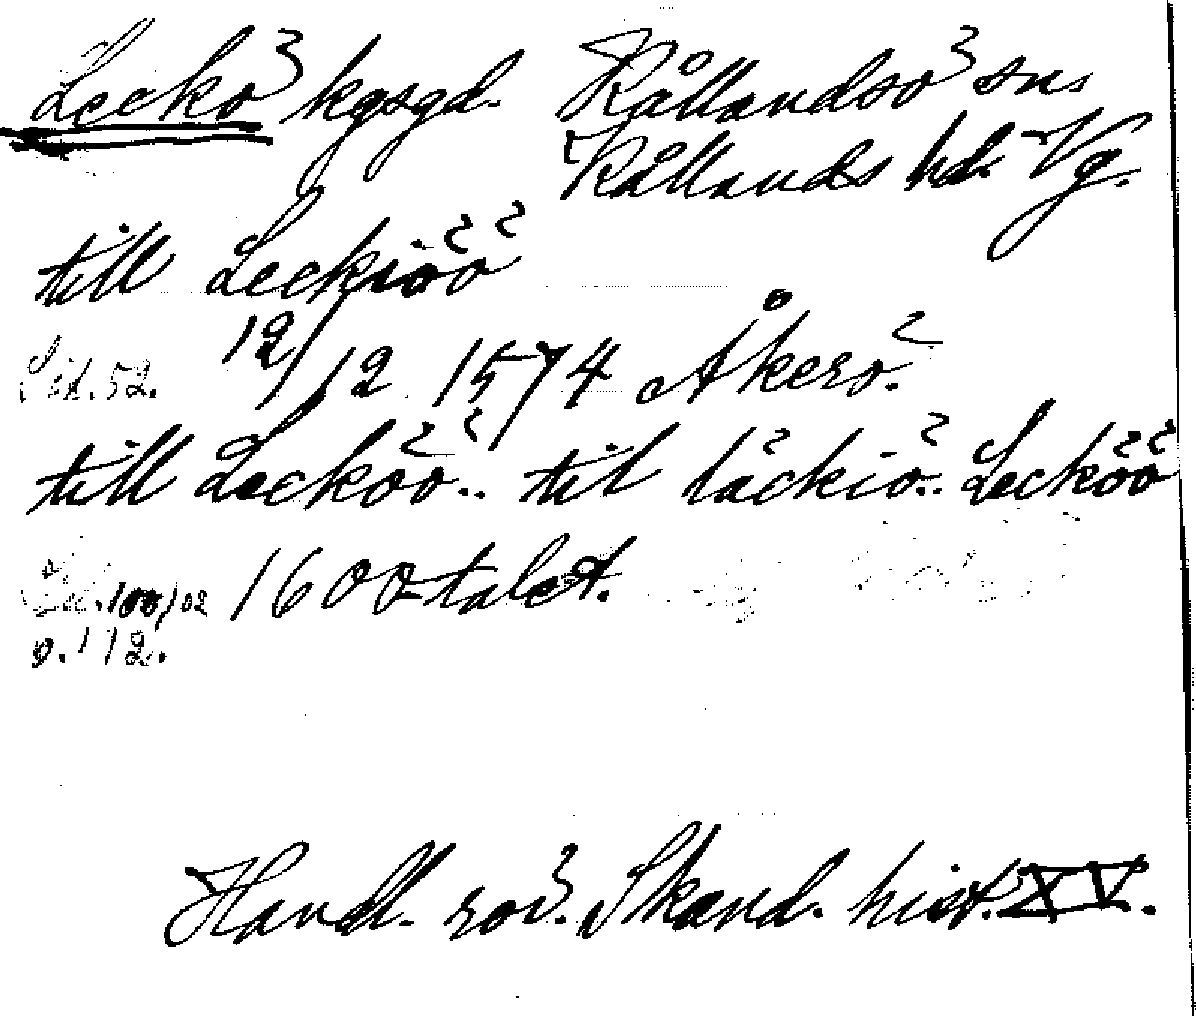 Leckö kgsgd. Kållandsö sn.
Kållands hd. Vg.
till Leckiöö
Sid. 52. 12/12 1574 Åkerö.
till Lecköö.. til läckiö.. Lecköö
Sid. 100, 102 1600 talet.
o. 112.
Handl. rör. Skand. hist. XV.